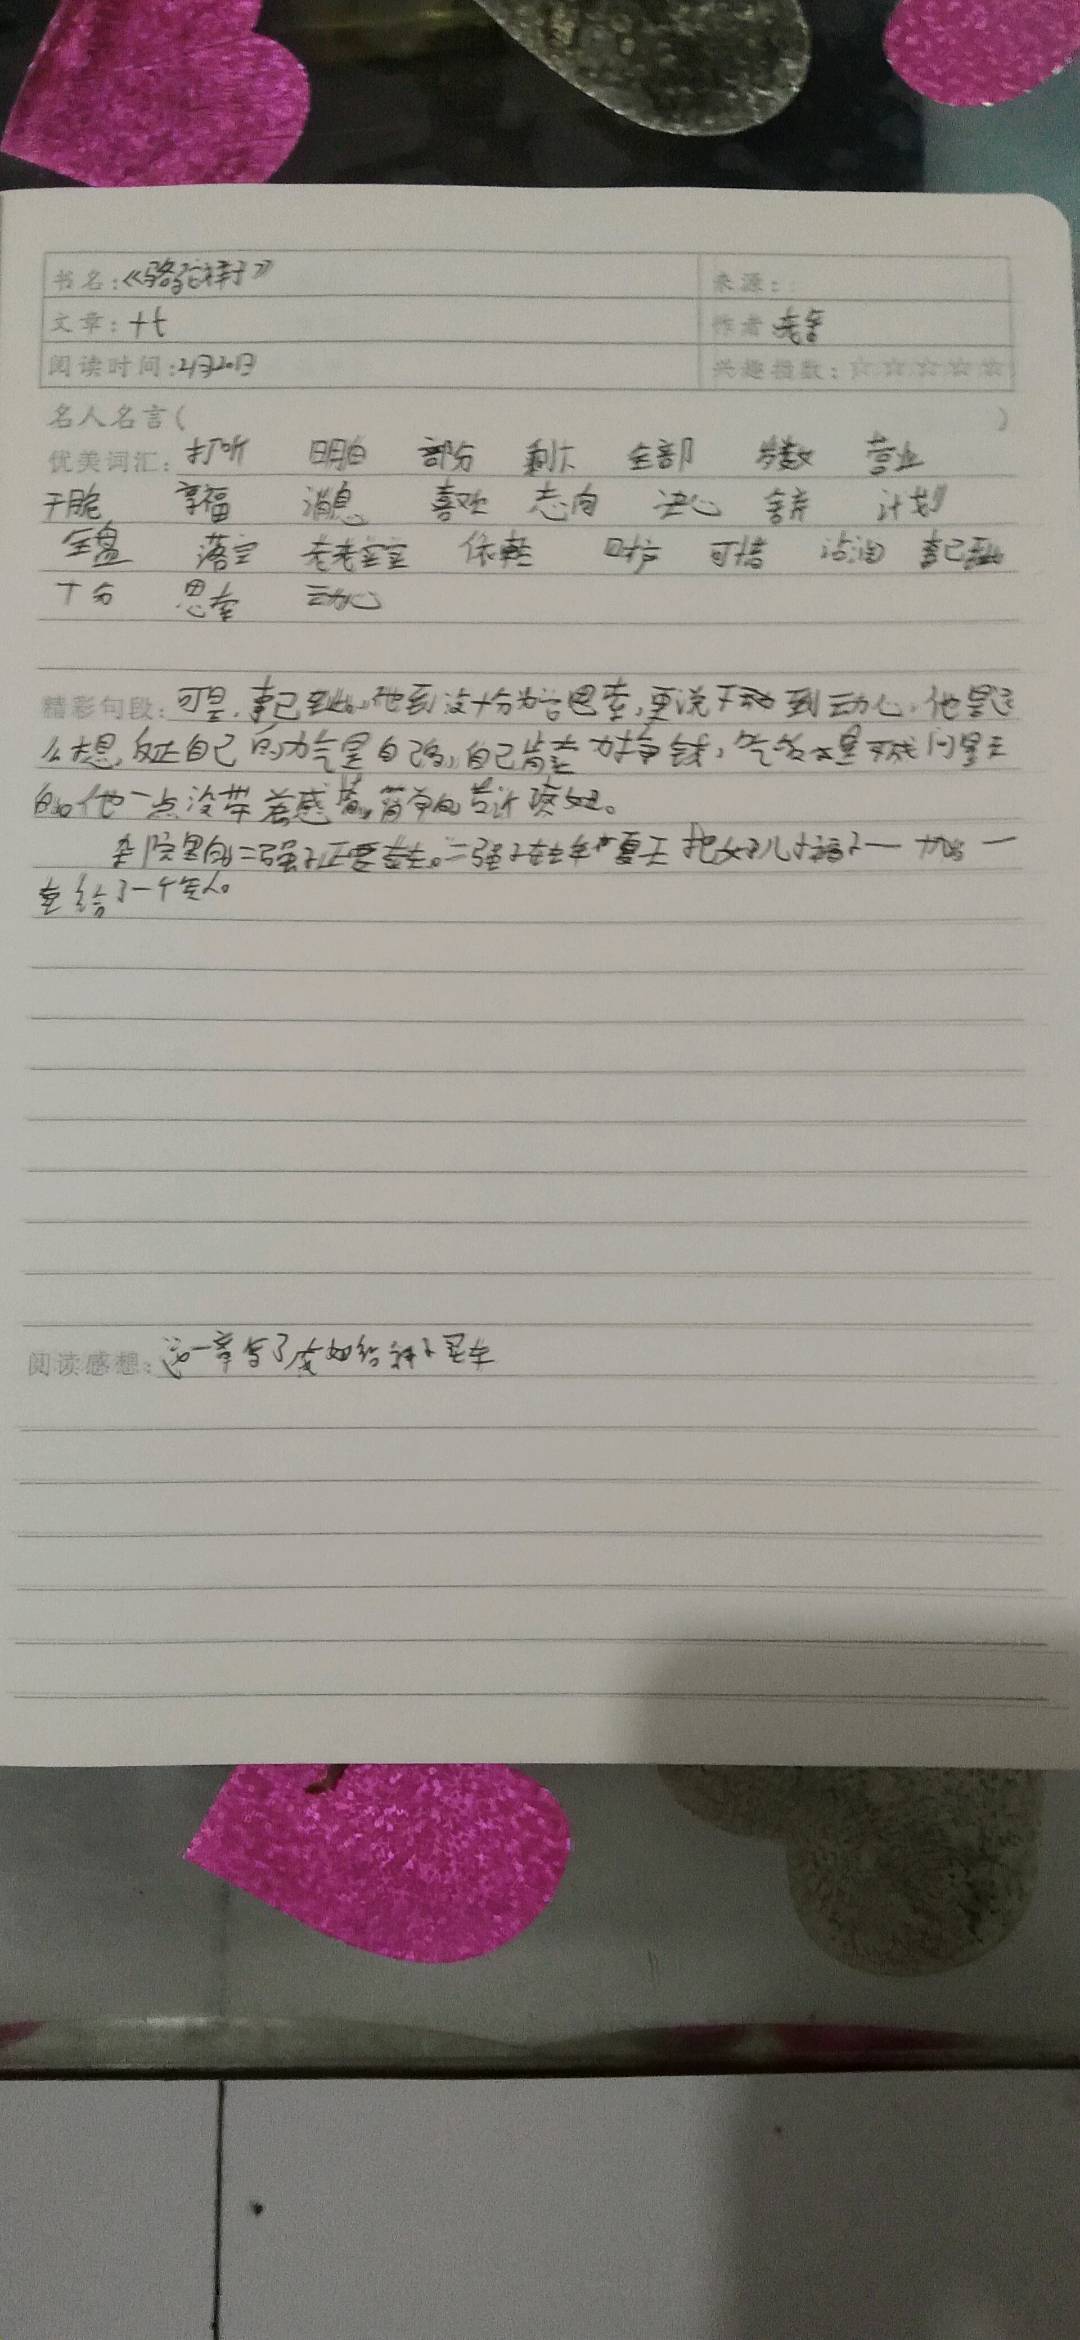 书名：《骆驼祥子》 来源：
文章：十七 作者 老舍
阅读时间：2月20日 兴趣指数：☆☆☆☆☆
名人名言（ ）
优美词汇：打听 明白 部分 剩下 全部 岁数 营业
干脆 享福 消息 喜欢 志向 决心 舍弃 计划
全盘 落空 老老实实 依赖 时 可惜 沾润 事已至此
十分 思索 动心
精彩句段：可是，事已至此，他到没十分为言思索，更说不到动心，他是这
么想，反正自己的力气是自己的，自己肯卖力挣钱，吃饭是不成问题
的，他一点没带着感情，简单的告诉虎妞。
杂院里的二强子正要卖车。二强子在去年夏天把女儿小福子—十九岁—
卖给了一个军人。
阅读感想：这一章写了虎妞给祥子买车